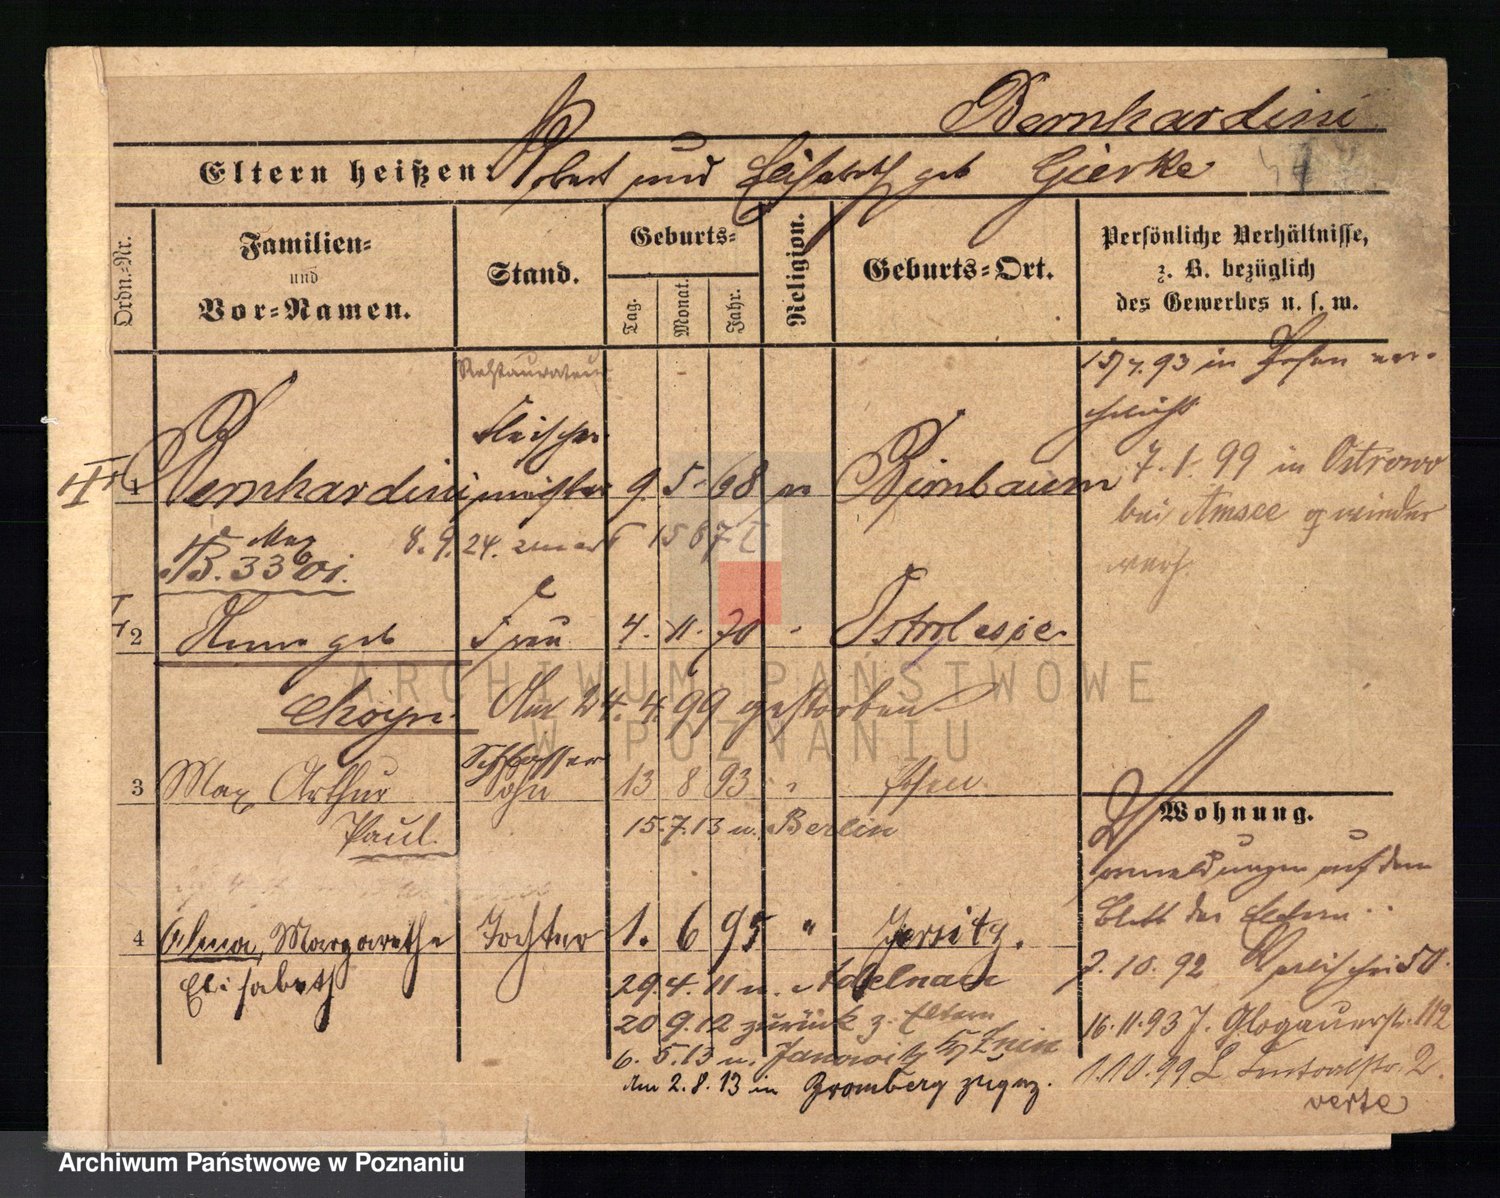 Bernhardini
Eltern heißen: Robert und Elisabeth geb Gierke
Ordn.-Nr.
Familien-
und
Vor-Namen.
Stand.
Geburts-
Tag.
Monat.
Jahr.
Religion.
Geburts-Ort.
Persönliche Verhältnisse,
z. B. bezüglich
des Gewerbes u. s. w.
Restaurateur
15/7.93 in Posen ver-
Fleischer
7.1.99 in Ostrowo
1 Bernhardini meister 9. 5. 68 Birnbaum
bei Amsee
Max 8.9.24.
2 geb Frau 4. 11. 70 "
Am 24.4.99 gestorben
Schlosser
3 Max Arthur Sohn 13 8 93 " Posen.
Paul. 15.7.13 n. Berlin
Wohnung.
auf dem
Blatt der Eltern
4 Alma, Margarethe Tochter 1. 6 95 " Jersitz.
Elisabeth
7.10.92 50.
29.4.11 n. Adelnau
20 9.12 zurück z. Eltern
16.11.93 J. Glogauerstr. 112
6. 5.13 n. Janowitz Znin
1.10.99 L 2.
Am 2.8.13 in Bromberg zugez.
verte
ARCHIWUM PAŃSTWOWE
W POZNANIU
Archiwum Państwowe w Poznaniu